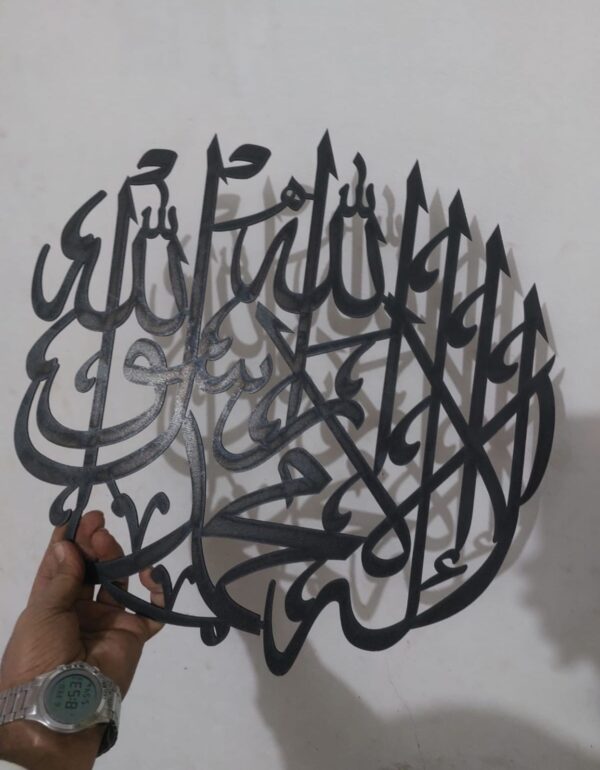 لا إله إلا الله محمد رسول الله
8:53